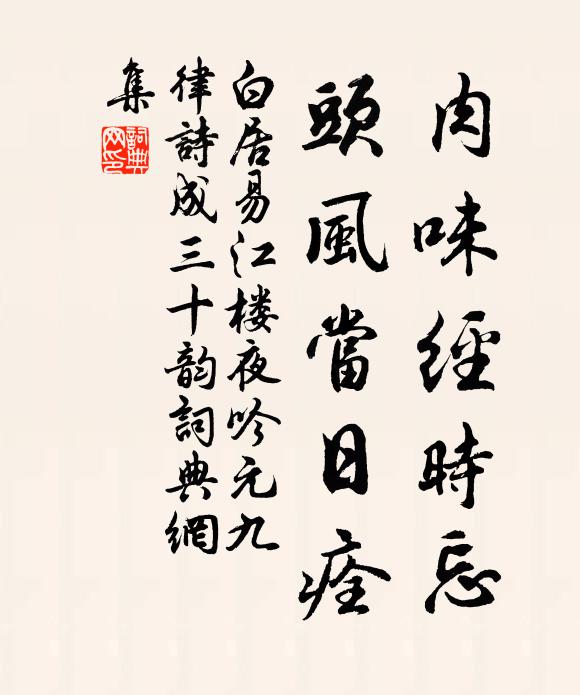 肉味經時忘
頭風當日痊
白居易江楼夜吟元九
律詩成三十韵詞典網
集
詞典
网印